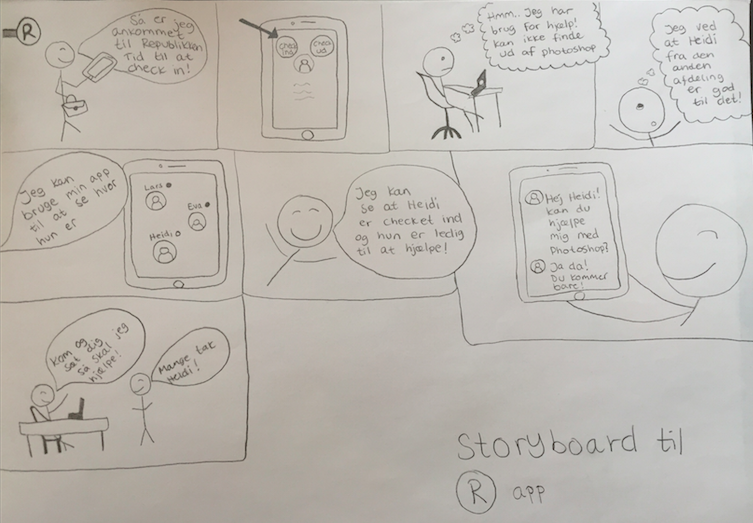 R
Så er jeg
ankommet
til Republikken
Tid til at
check in!
Check
ind
Check
ud
Hmm.. Jeg har
brug for hjælp!
kan ikke finde
ud af photoshop
Jeg ved
at Heidi
fra den
anden
afdeling
er god
til det!
Jeg kan
bruge min app
til at se hvor
hun er
Lars
Eva
Heidi
Jeg kan
se at Heidi
er checket ind
og hun er ledig
til at hjælpe!
Hej Heidi!
kan du
hjælpe
mig med
Photoshop?
Ja da!
Du kommer
bare!
Kom og
sæt dig
så skal jeg
hjælpe!
Mange tak
Heidi!
Storyboard til
R app